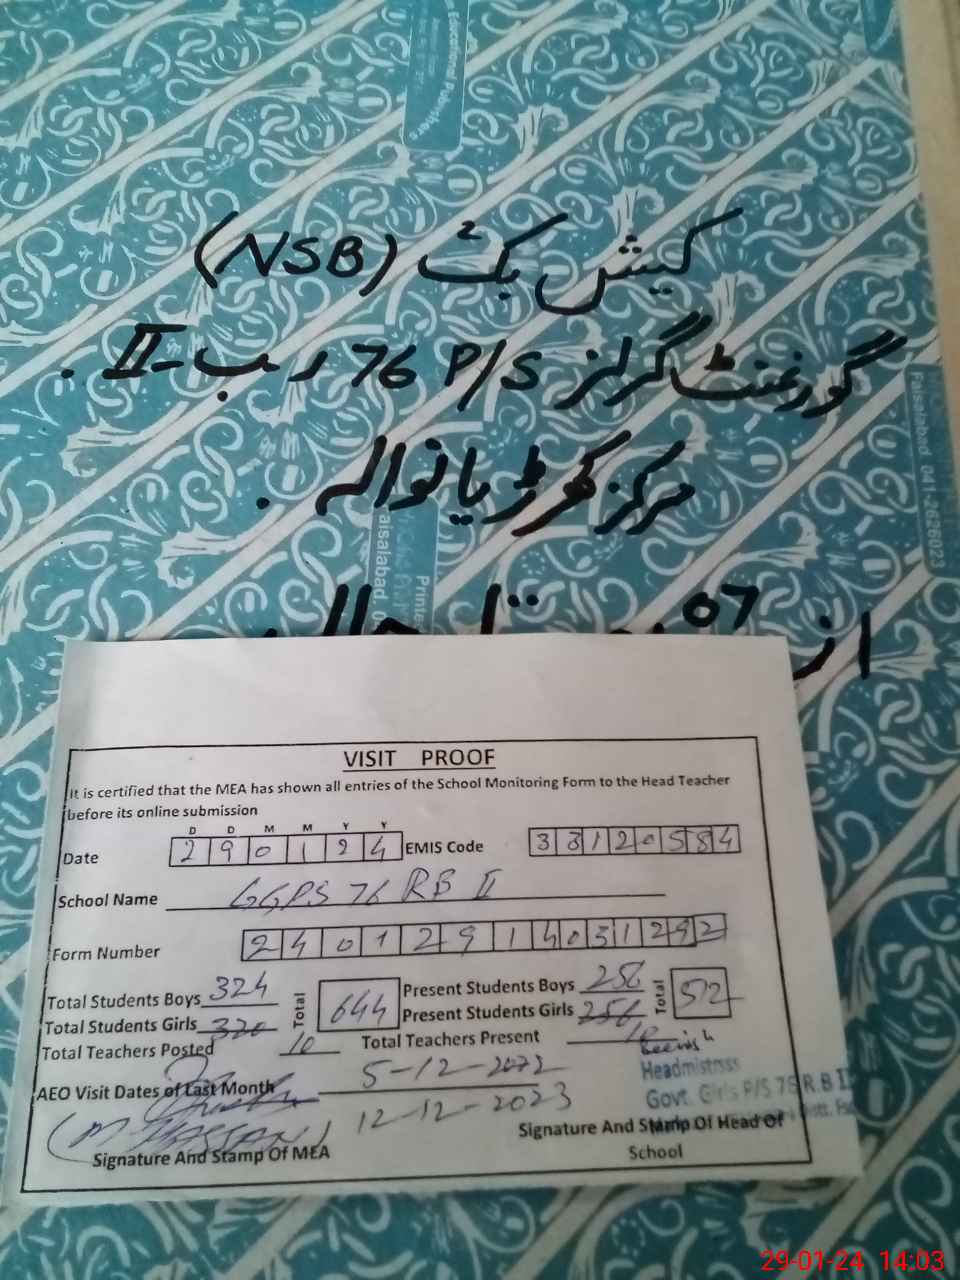 Educational Publishers
کیش بک (NSB)
گورنمنٹ گرلز P/S 76 ر ب-II.
مرکز کھرڑیانوالہ.
Faisalabad 041-2626023
aisalabad.
Printe
از 07
VISIT PROOF
It is certified that the MEA has shown all entries of the School Monitoring Form to the Head Teacher
before its online submission
D D M M Y Y
Date 290124 EMIS Code 33120584
School Name GGPS 76 RB II
Form Number 24012914031292
Total Students Boys 324 Total 644 Present Students Boys 256 Total 512
Total Students Girls 320 Present Students Girls 256
Total Teachers Posted 10 Total Teachers Present 10
AEO Visit Dates of Last Month 5-12-2023
12-12-2023
Headmistrss
Govt. Girls P/S 76 R.B II
(M HASSAN)
Signature And Stamp Of MEA
Signature And Stamp Of Head Of
School
29-01-24 14:03